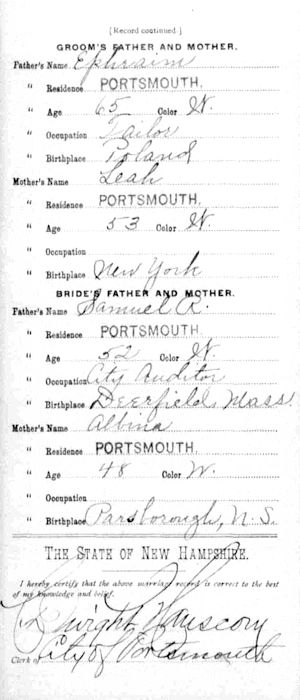 (Record continued)
GROOM'S FATHER AND MOTHER.
Father's Name Ephraim
" Residence PORTSMOUTH,
" Age 65 Color W.
" Occupation Tailor
" Birthplace Poland
Mother's Name Leah
" Residence PORTSMOUTH,
" Age 53 Color W.
" Occupation
" Birthplace New York
BRIDE'S FATHER AND MOTHER.
Father's Name Samuel R.
" Residence PORTSMOUTH,
" Age 52 Color W.
" Occupation City Auditor
" Birthplace Deerfield, Mass
Mother's Name Albina
" Residence PORTSMOUTH,
" Age 48 Color W.
" Occupation
" Birthplace Parsborough, N.S.
THE STATE OF NEW HAMPSHIRE.
I hereby certify that the above marriage record is correct to the best
of my knowledge and belief.
Dwight
Clerk of City of Portsmouth